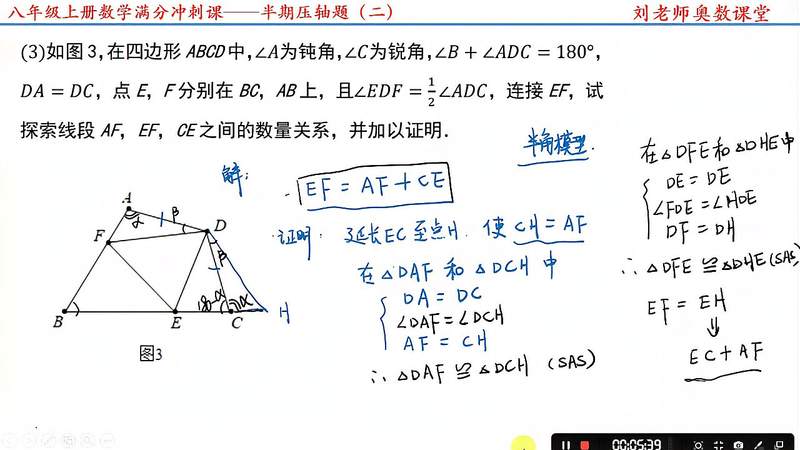 八年级上册数学满分冲刺课——半期压轴题（二）
刘老师奥数课堂
(3)如图 3，在四边形 ABCD 中，∠A为钝角，∠C为锐角，∠B + ∠ADC = 180°，
DA = DC，点 E，F 分别在 BC，AB 上，且∠EDF = 1/2∠ADC，连接 EF，试
探索线段 AF，EF，CE 之间的数量关系，并加以证明．
半角模型.
解:
EF = AF + CE
证明: 延长EC至点H. 使 CH = AF
在△DAF 和 △DCH 中
DA = DC
∠DAF = ∠DCH
AF = CH
∴ △DAF ≌ △DCH (SAS)
在△DFE 和 △DHE 中
DE = DE
∠FDE = ∠HDE
DF = DH
∴ △DFE ≌ △DHE (SAS)
EF = EH
⇓
EC + AF
A
α
β
F
D
β
B
E
C
α
H
图3
00:05:39